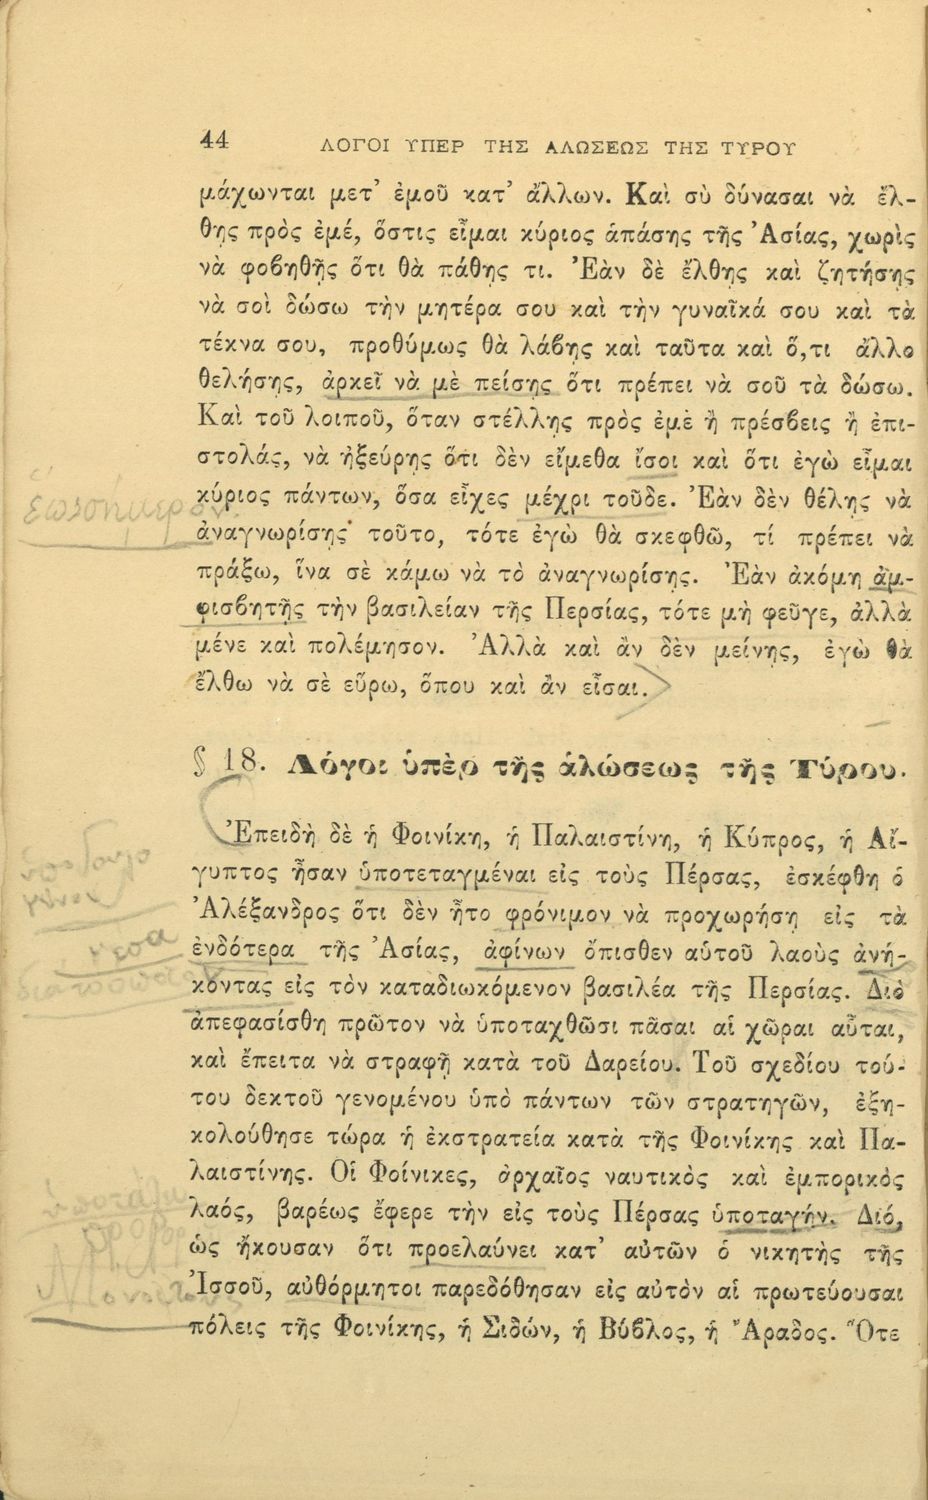 44 ΛΟΓΟΙ ΥΠΕΡ ΤΗΣ ΑΛΩΣΕΩΣ ΤΗΣ ΤΥΡΟΥ
μάχωνται μετ' ἐμοῦ κατ' ἄλλων. Καὶ σὺ δύνασαι νὰ ἔλ-
θῃς πρὸς ἐμέ, ὅστις εἶμαι κύριος ἁπάσης τῆς Ἀσίας, χωρὶς
νὰ φοβηθῇς ὅτι θὰ πάθῃς τι. Ἐὰν δὲ ἔλθῃς καὶ ζητήσῃς
νὰ σοὶ δώσω τὴν μητέρα σου καὶ τὴν γυναῖκά σου καὶ τὰ
τέκνα σου, προθύμως θὰ λάβῃς καὶ ταῦτα καὶ ὅ,τι ἄλλο
θελήσῃς, ἀρκεῖ νὰ μὲ πείσῃς ὅτι πρέπει νὰ σοῦ τὰ δώσω.
Καὶ τοῦ λοιποῦ, ὅταν στέλλῃς πρὸς ἐμὲ ἢ πρέσβεις ἢ ἐπι-
στολάς, νὰ ἠξεύρῃς ὅτι δὲν εἴμεθα ἴσοι καὶ ὅτι ἐγὼ εἶμαι
κύριος πάντων, ὅσα εἶχες μέχρι τοῦδε. Ἐὰν δὲν θέλῃς νὰ
ἀναγνωρίσῃς τοῦτο, τότε ἐγὼ θὰ σκεφθῶ, τί πρέπει νὰ
πράξω, ἵνα σὲ κάμω νὰ τὸ ἀναγνωρίσῃς. Ἐὰν ἀκόμη ἀμ-
φισβητῇς τὴν βασιλείαν τῆς Περσίας, τότε μὴ φεῦγε, ἀλλὰ
μένε καὶ πολέμησον. Ἀλλὰ καὶ ἂν δὲν μείνῃς, ἐγὼ θὰ
ἔλθω νὰ σὲ εὕρω, ὅπου καὶ ἂν εἶσαι.
§ 18. Λόγοι ὑπὲρ τῆς ἁλώσεως τῆς Τύρου.
Ἐπειδὴ δὲ ἡ Φοινίκη, ἡ Παλαιστίνη, ἡ Κύπρος, ἡ Αἴ-
γυπτος ἦσαν ὑποτεταγμέναι εἰς τοὺς Πέρσας, ἐσκέφθη ὁ
Ἀλέξανδρος ὅτι δὲν ἦτο φρόνιμον νὰ προχωρήσῃ εἰς τὰ
ἐνδότερα τῆς Ἀσίας, ἀφίνων ὄπισθεν αὑτοῦ λαοὺς ἀνή-
κοντας εἰς τὸν καταδιωκόμενον βασιλέα τῆς Περσίας. Διὸ
ἀπεφασίσθη πρῶτον νὰ ὑποταχθῶσι πᾶσαι αἱ χῶραι αὗται,
καὶ ἔπειτα νὰ στραφῇ κατὰ τοῦ Δαρείου. Τοῦ σχεδίου τού-
του δεκτοῦ γενομένου ὑπὸ πάντων τῶν στρατηγῶν, ἐξη-
κολούθησε τώρα ἡ ἐκστρατεία κατὰ τῆς Φοινίκης καὶ Πα-
λαιστίνης. Οἱ Φοίνικες, ἀρχαῖος ναυτικὸς καὶ ἐμπορικὸς
λαός, βαρέως ἔφερε τὴν εἰς τοὺς Πέρσας ὑποταγήν. Διό,
ὡς ἤκουσαν ὅτι προελαύνει κατ' αὐτῶν ὁ νικητὴς τῆς
Ἰσσοῦ, αὐθόρμητοι παρεδόθησαν εἰς αὐτὸν αἱ πρωτεύουσαι
πόλεις τῆς Φοινίκης, ἡ Σιδών, ἡ Βύβλος, ἡ Ἄραδος. Ὅτε